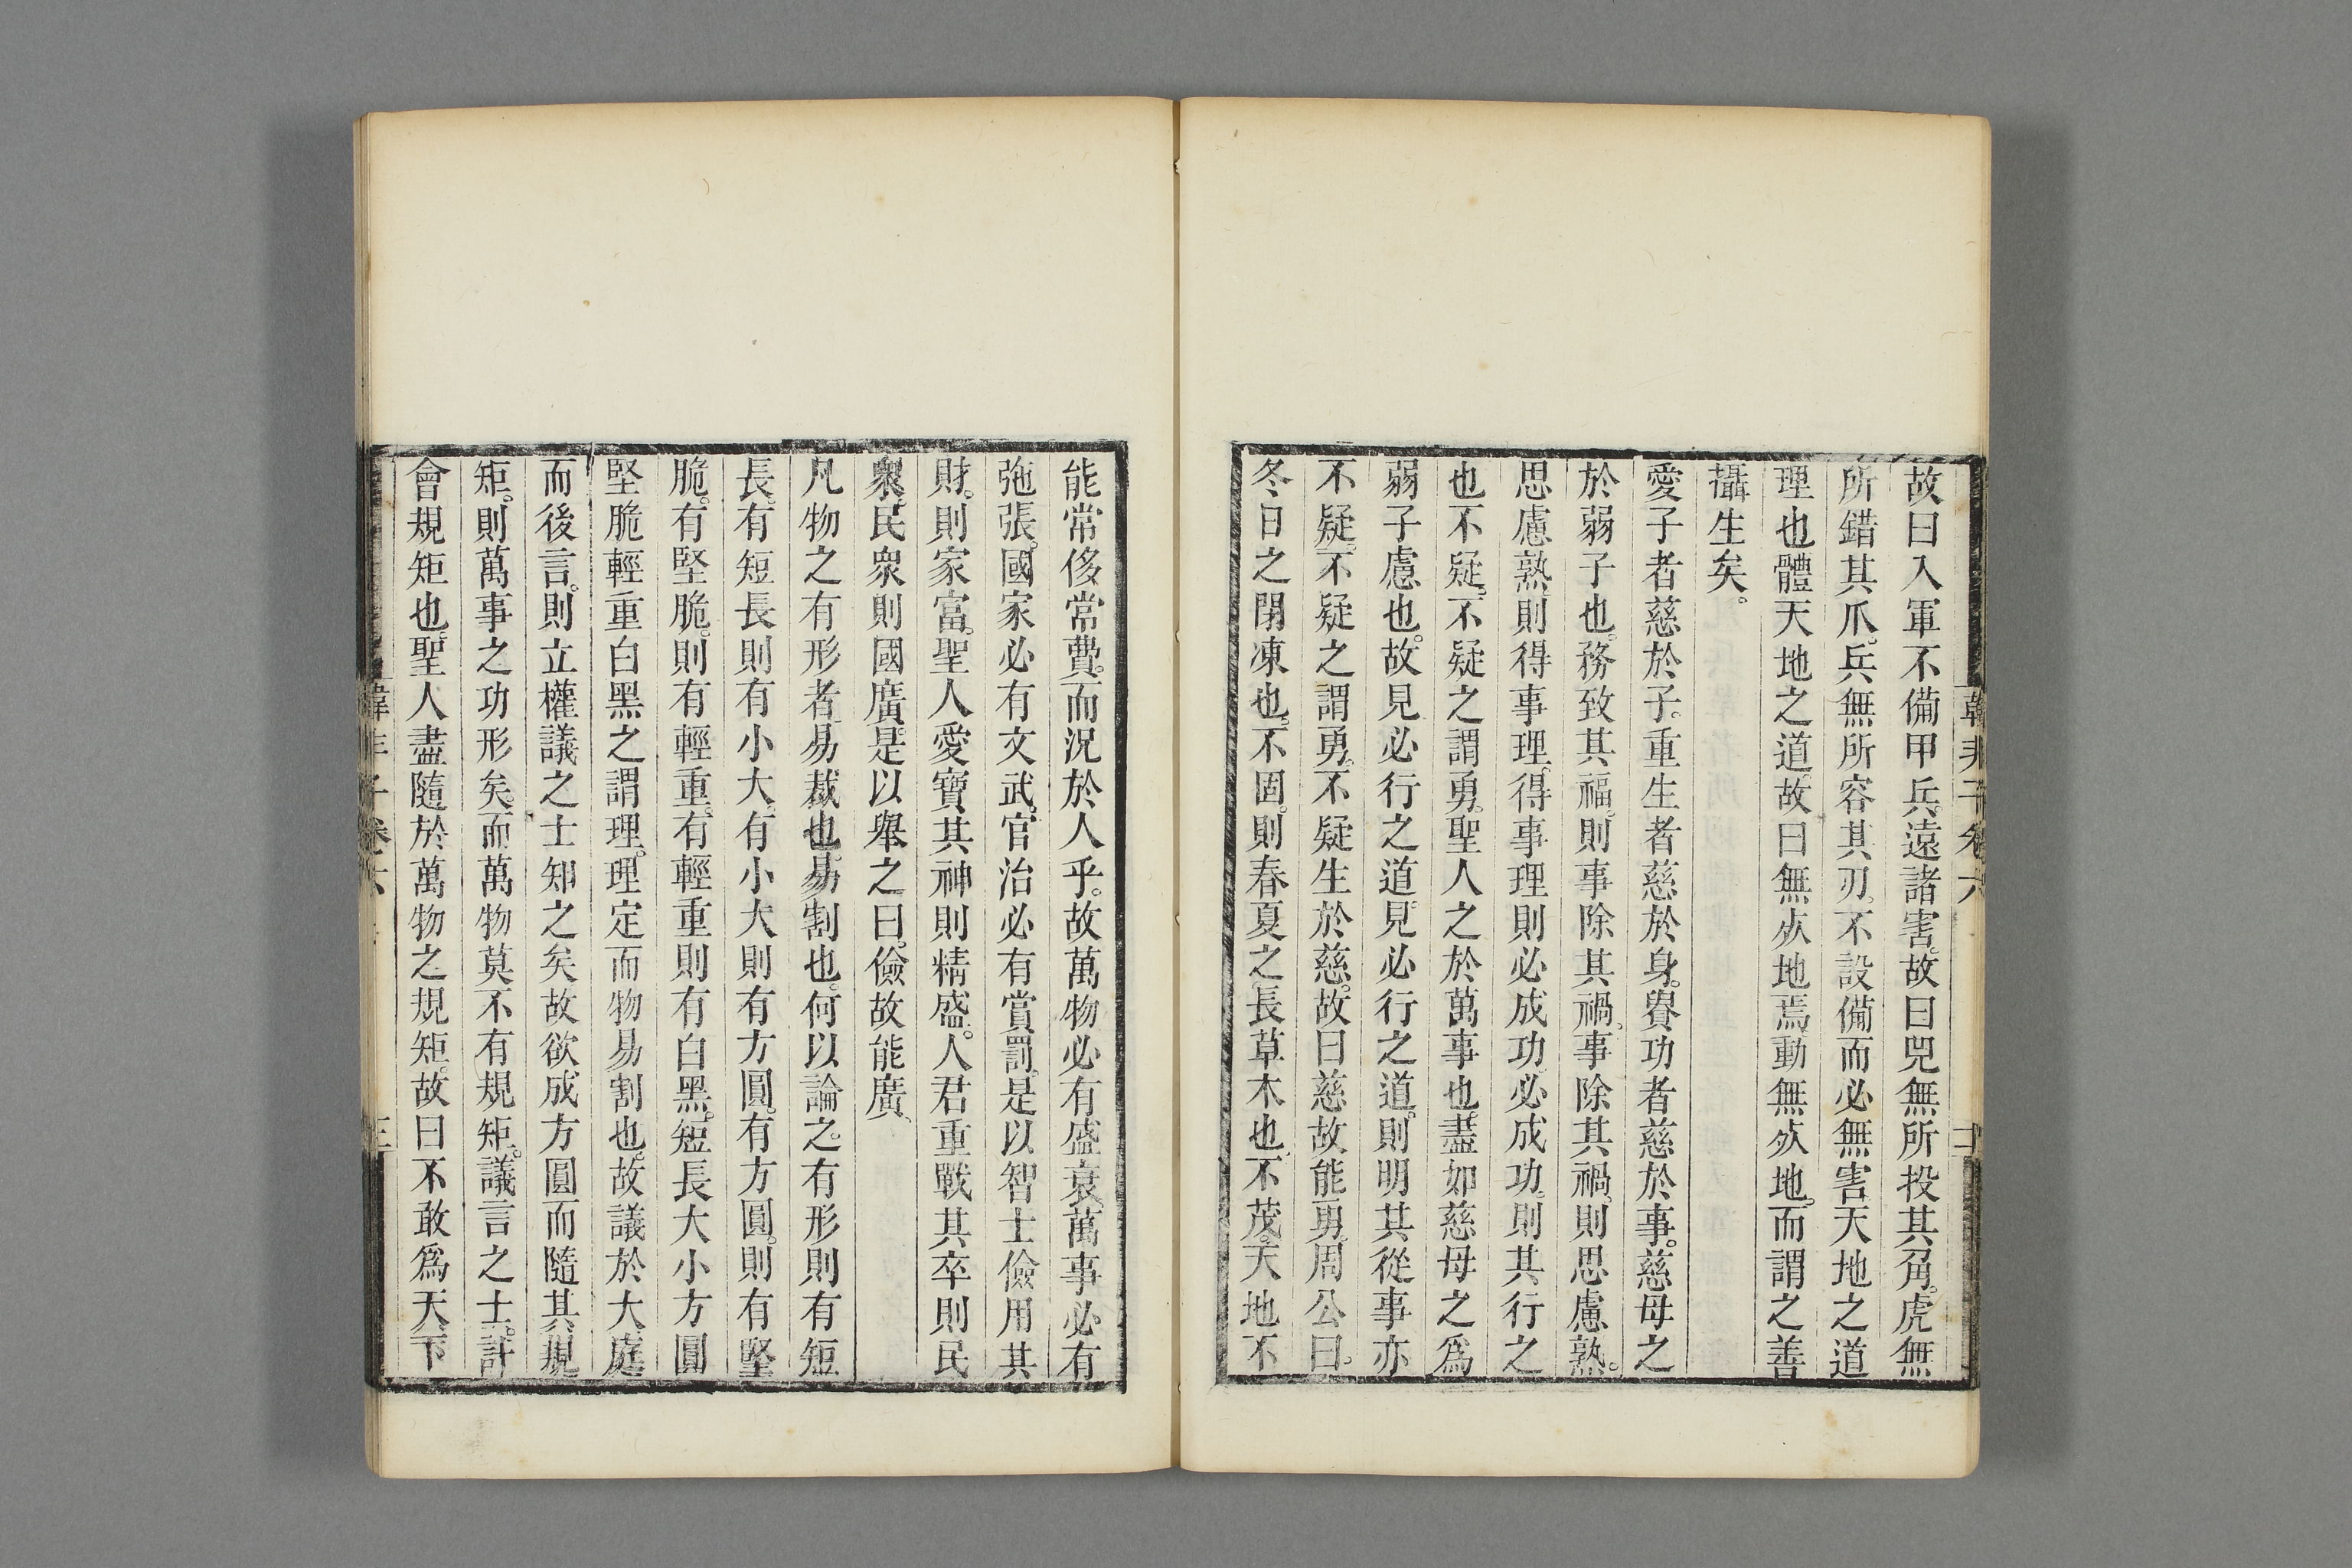 故曰入軍不備甲兵。遠諸害。故曰兕無所投其角。虎無
所錯其爪。兵無所容其刃。不設備而必無害。天地之道
理也。體天地之道。故曰無死地焉。動無死地。而謂之善
攝生矣。
愛子者慈於子。重生者慈於身。貴功者慈於事。慈母之
於弱子也。務致其福。則事除其禍。事除其禍。則思慮熟。
思慮熟。則得事理。得事理則必成功。必成功。則其行之
也不疑。不疑之謂勇。聖人之於萬事也。盡如慈母之爲
弱子慮也。故見必行之道。見必行之道。則明其從事亦
不疑。不疑之謂勇。不疑生於慈。故曰慈故能勇。周公曰。
冬日之閉凍也。不固。則春夏之長草木也。不茂。天地不
能常侈常費。而況於人乎。故萬物必有盛衰。萬事必有
弛張。國家必有文武。官治必有賞罰。是以智士儉用其
財。則家富。聖人愛寶其神則精盛。人君重戰其卒則民
衆。民衆則國廣。是以舉之曰。儉故能廣。
凡物之有形者。易裁也。易割也。何以論之。有形則有短
長。有短長則有小大。有小大則有方圓。有方圓。則有堅
脆。有堅脆。則有輕重。有輕重則有白黑。短長大小方圓
堅脆輕重白黑之謂理。理定而物易割也。故議於大庭
而後言。則立權議之士知之矣。故欲成方圓而隨其規
矩。則萬事之功形矣。而萬物莫不有規矩。議言之士。計
會規矩也。聖人盡隨於萬物之規矩。故曰不敢爲天下